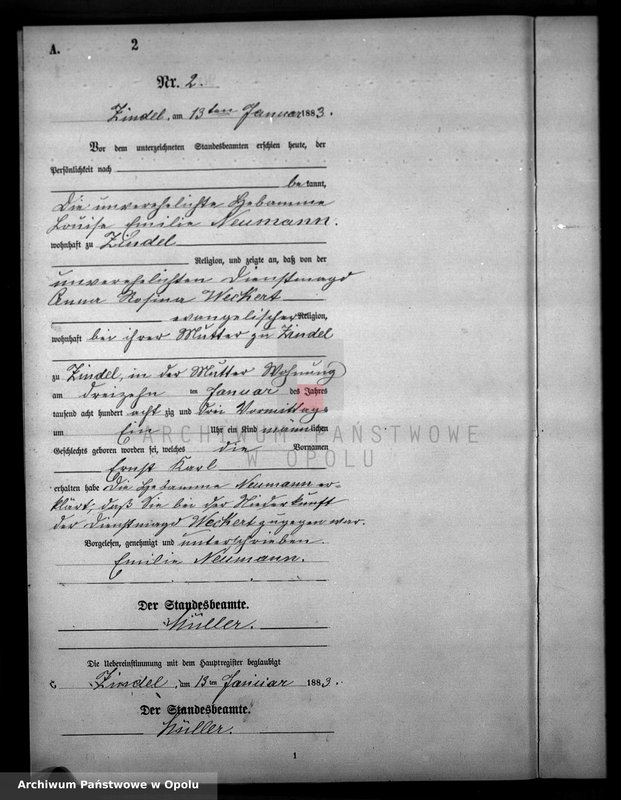 A.
2
Nr. 2.
Zindel, am 13ten Januar 1883.
Vor dem unterzeichneten Standesbeamten erschien heute, der
Persönlichkeit nach
bekannt,
Die unverehelichte Hebamme
Louise Emilie Neumann.
wohnhaft zu Zindel
Religion, und zeigte an, daß von der
unverehelichten Dienstmagd
Anna Rosina Weckert
evangelischer Religion,
wohnhaft bei ihrer Mutter zu Zindel
zu Zindel, in der Mutter Wohnung
am dreizehn ten Januar des Jahres
tausend acht hundert acht zig und drei Vormittags
um Ein Uhr ein Kind männlichen
Geschlechts geboren worden sei, welches die Vornamen
Ernst Karl
erhalten habe Die Hebamme Neumann er-
klärt, daß Sie bei der Niederkunft
der Dienstmagd Weckert zugegen war.
Vorgelesen, genehmigt und unterschrieben.
Emilie Neumann.
Der Standesbeamte.
Müller.
Die Uebereinstimmung mit dem Hauptregister beglaubigt
Zindel, am 13ten Januar 1883.
Der Standesbeamte.
Müller.
1
ARCHIWUM PAŃSTWOWE
W OPOLU
Archiwum Państwowe w Opolu